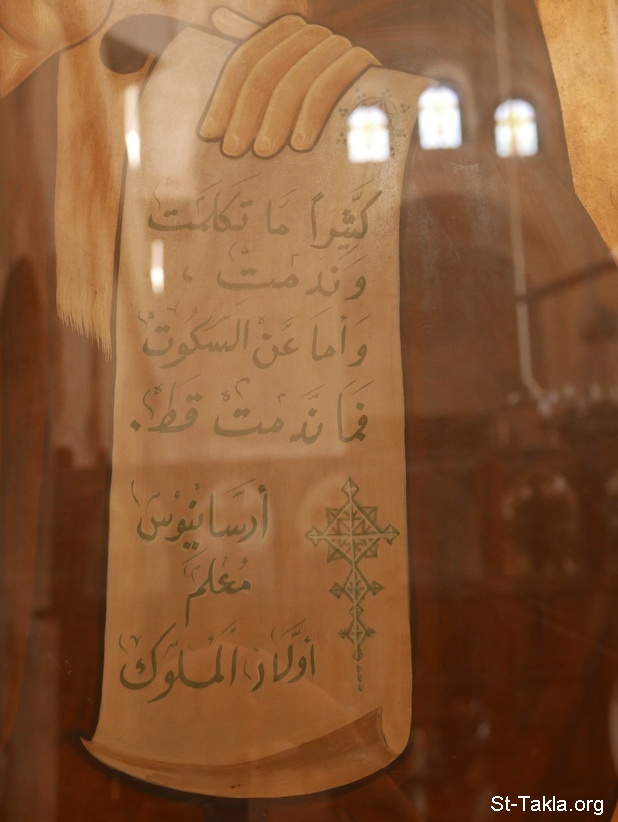 كَثِيراً مَا تَكَلَمَتْ
وَندمتْ ،
وَأما عَنْ السَكوُتْ
فَمَا نَّدمتْ قَطْ .
أرسَانِيُوسْ
مُعَلمْ
أوَّلَادْ اَلمْلوُكْ
St-Takla.org